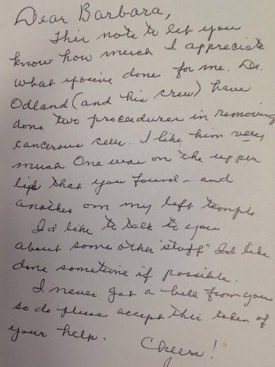 Dear Barbara,
This note to let you
know how much I appreciate
what you've done for me. Dr.
Odland (and his crew) have
done two proceedures in removing
cancerous cells. I like him very
much. One was on the upper
lip that you found - and
another on my left temple
I'd like to talk to you
about some other "stuff" I'd like
done sometime if possible.
I never got a bill from you
so do please accept this token of
your help.
Cheers!